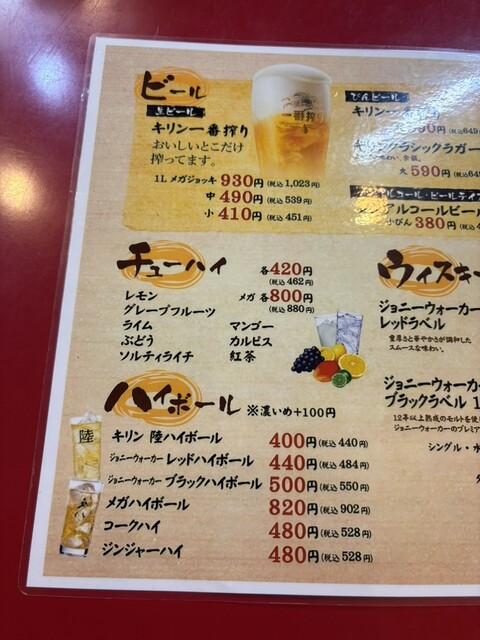 ビール
生ビール
キリン一番搾り
おいしいとこだけ
搾ってます。
1L メガジョッキ 930円(税込 1,023円)
中 490円(税込 539円)
小 410円(税込 451円)
一番搾り
びんビール
キリン一
キリンクラシックラガー
大 590円(税込649
アルコール・ビールテイス
アルコールビール
小びん 380円
チューハイ
各420円
(税込 462円)
メガ 各800円
(税込 880円)
レモン
グレープフルーツ
ライム
ぶどう
ソルティライチ
マンゴー
カルピス
紅茶
ウィスキー
ジョニーウォーカー
レッドラベル
豊厚さと華やかさが調和した
スムースな味わい。
ジョニーウォーカー
ブラックラベル 1
12年以上熟成のモルトを使
ジョニーウォーカーのプレミア
シングル・水
ハイボール ※濃いめ+100円
陸
キリン 陸ハイボール 400円(税込 440円)
ジョニーウォーカー レッドハイボール 440円(税込 484円)
ジョニーウォーカー ブラックハイボール 500円(税込 550円)
メガハイボール 820円(税込 902円)
コークハイ 480円(税込 528円)
ジンジャーハイ 480円(税込 528円)